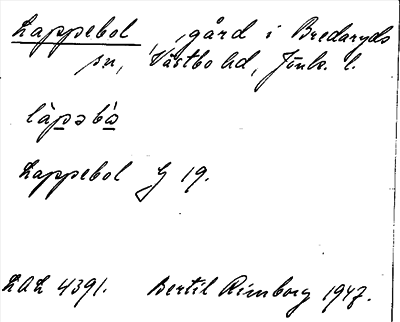 Lappebol, gård i Bredaryds
sn, Västbo hd, Jönk. l.
làpəbɷ̀
Lappebol G 19.
LAL 4391. Bertil Rimborg 1947.